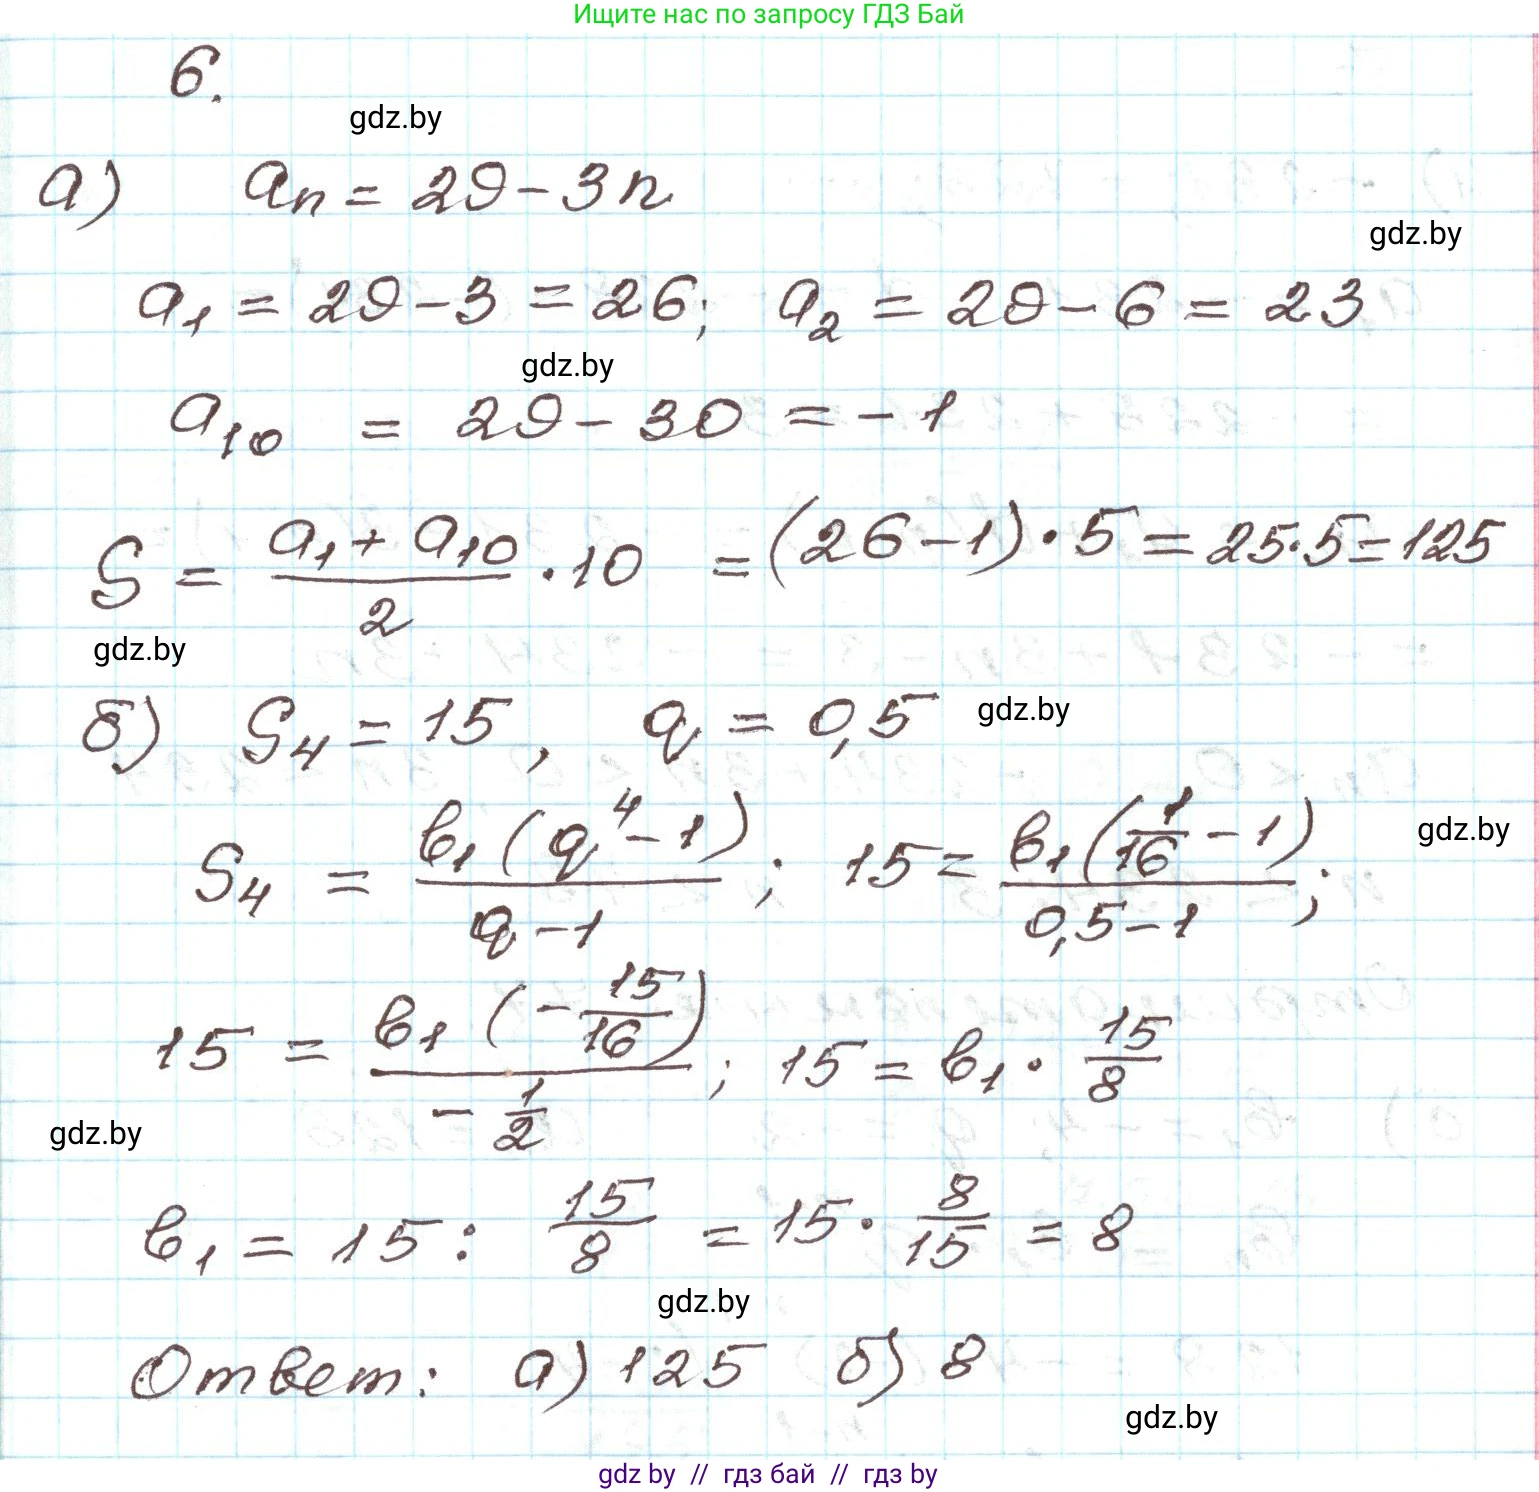 Ищите нас по запросу ГДЗ Бай
6.
gdz.by
а) aₙ = 29 - 3n
gdz.by
a₁ = 29 - 3 = 26; a₂ = 29 - 6 = 23
gdz.by
a₁₀ = 29 - 30 = -1
S = (a₁ + a₁₀)/2 · 10 = (26 - 1) · 5 = 25·5 = 125
gdz.by
б) S₄ = 15, q = 0,5 gdz.by
S₄ = b₁(q⁴ - 1)/(q - 1); 15 = b₁(1/16 - 1)/(0,5 - 1); gdz.by
15 = b₁(-15/16)/(-1/2); 15 = b₁ · 15/8
gdz.by
b₁ = 15 : 15/8 = 15 · 8/15 = 8
gdz.by
Ответ: а) 125 б) 8
gdz.by
gdz by // гдз бай // гдз by